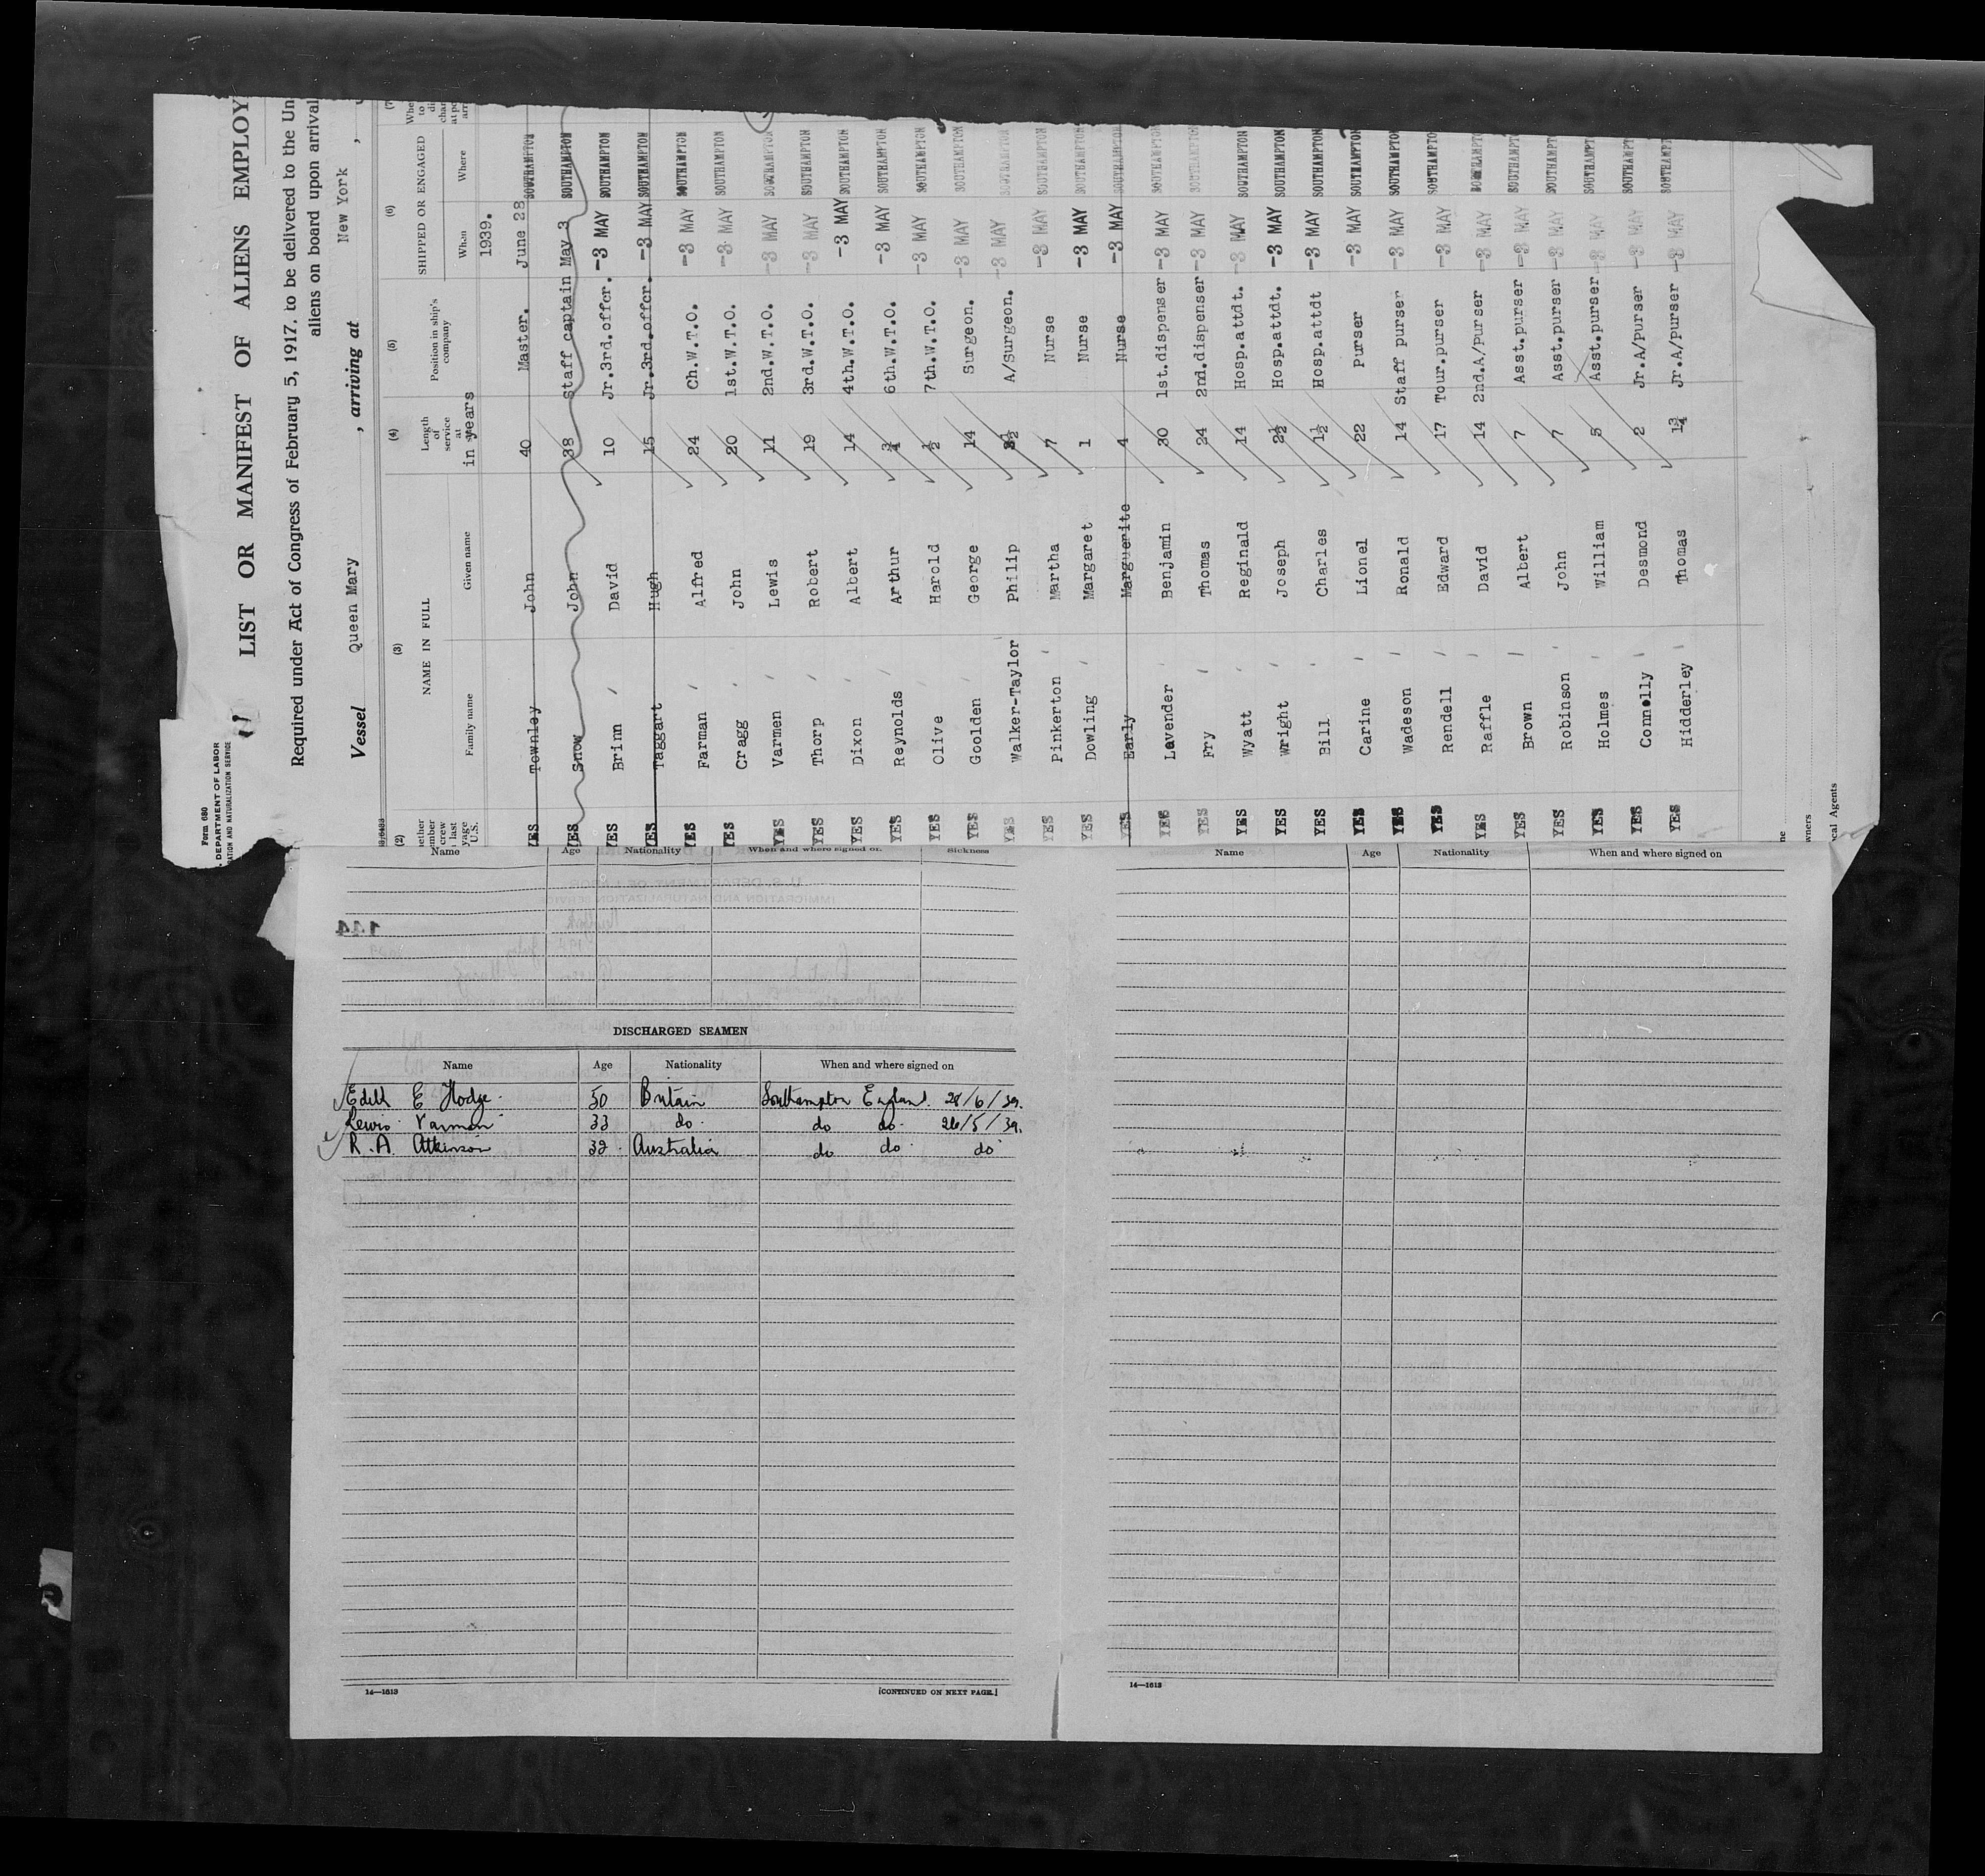 Form 680
DEPARTMENT OF LABOR
RATION AND NATURALIZATION SERVICE
LIST OR MANIFEST OF ALIENS EMPLOY
Required under Act of Congress of February 5, 1917, to be delivered to the Un
aliens on board upon arrival
Vessel Queen Mary , arriving at New York ,
(2) (3) (4) (5) (6) (7)
NAME IN FULL Length of service at in years Position in ship's company SHIPPED OR ENGAGED
Family name Given name When Where
1939.
YES Townley John 40 Master. June 28 SOUTHAMPTON
YES Snow John 38 Staff captain May 3 SOUTHAMPTON
YES Brinn David 10 Jr.3rd.offcr. -3 MAY SOUTHAMPTON
YES Taggart Hugh 15 Jr.3rd.offcr. -3 MAY SOUTHAMPTON
YES Farman Alfred 24 Ch.W.T.O. -3 MAY SOUTHAMPTON
YES Cragg John 20 1st.W.T.O. -3 MAY SOUTHAMPTON
YES Varmen Lewis 11 2nd.W.T.O. -3 MAY SOUTHAMPTON
YES Thorp Robert 19 3rd.W.T.O. -3 MAY SOUTHAMPTON
YES Dixon Albert 14 4th.W.T.O. -3 MAY SOUTHAMPTON
YES Reynolds Arthur ¾ 6th.W.T.O. -3 MAY SOUTHAMPTON
YES Olive Harold ½ 7th.W.T.O. -3 MAY SOUTHAMPTON
YES Goolden George 14 Surgeon. -3 MAY SOUTHAMPTON
YES Walker-Taylor Philip A/Surgeon. -3 MAY SOUTHAMPTON
YES Pinkerton Martha 7 Nurse -3 MAY SOUTHAMPTON
YES Dowling Margaret 1 Nurse -3 MAY SOUTHAMPTON
YES Early Marguerite 4 Nurse -3 MAY SOUTHAMPTON
YES Lavender Benjamin 30 1st.dispenser -3 MAY SOUTHAMPTON
YES Fry Thomas 24 2nd.dispenser -3 MAY SOUTHAMPTON
YES Wyatt Reginald 14 Hosp.attdt. -3 MAY SOUTHAMPTON
YES Wright Joseph 2½ Hosp.attdt. -3 MAY SOUTHAMPTON
YES Bill Charles 1½ Hosp.attdt -3 MAY SOUTHAMPTON
YES Carine Lionel 22 Purser -3 MAY SOUTHAMPTON
YES Wadeson Ronald 14 Staff purser -3 MAY SOUTHAMPTON
YES Rendell Edward 17 Tour.purser -3 MAY SOUTHAMPTON
YES Raffle David 14 2nd.A/Purser -3 MAY SOUTHAMPTO
YES Brown Albert 7 Asst.purser -3 MAY SOUTHAMPT
YES Robinson John 7 Asst.purser -3 MAY SOUTHAMPT
YES Holmes William 5 Asst.purser -3 MAY SOUTHAMPT
YES Connolly Desmond 2 Jr.A/purser -3 MAY SOUTHAMPT
YES Hidderley Thomas 1¾ Jr.A/purser -3 MAY SOUTHAMPT
wners
cal Agents
Name Age Nationality When and where signed on. Sickness
144
DISCHARGED SEAMEN
Name Age Nationality When and where signed on
Edith E Hodge. 50 Britain Southampton England. 28/6/39.
Lewis Varman 33 do. do do. 26/5/39.
R. A. Atkinson 32. Australia do do do
14—1613 [CONTINUED ON NEXT PAGE.]
Name Age Nationality When and where signed on
14—1613